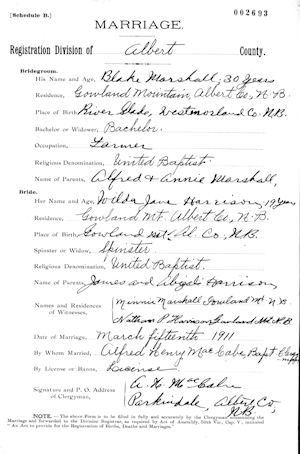 [Schedule B.] 002693
MARRIAGE.
Registration Division of Albert County.
Bridegroom.
His Name and Age, Blake Marshall; 30 Years
Residence, Gowland Mountain, Albert Co, N.B.
Place of Birth River Glade, Westmorland Co. N.B.
Bachelor or Widower, Bachelor.
Occupation, Farmer
Religious Denomination, United Baptist.
Name of Parents, Alfred & Annie Marshall,
Bride.
Her Name and Age, Wilda Jane Harrison, 19 years
Residence, Gowland Mt. Albert Co, N.B.
Place of Birth, Gowland Mt., Al. Co. N.B.
Spinster or Widow, Spinster
Religious Denomination, United Baptist.
Name of Parents, James and Abigail Harrison,
Names and Residences of Witnesses, Minnie Marshall Gowland Mt N.B.
Nathan P. Harrison Gowland Mt N.B
Date of Marriage, March fifteenth 1911
By Whom Married, Alfred Henry MacCabe, Bapt
By License or Banns, License
Signature and P. O. Address of Clergyman, A. H. McCabe
Parkindale, Albert Co,
N.B.
NOTE. — The above Form is to be filled in fully and accurately by the Clergyman solemnizing the
Marriage and forwarded to the Division Registrar, as required by Act of Assembly, 50th Vic., Cap. V, intituled
"An Act to provide for the Registration of Births, Deaths and Marriages."